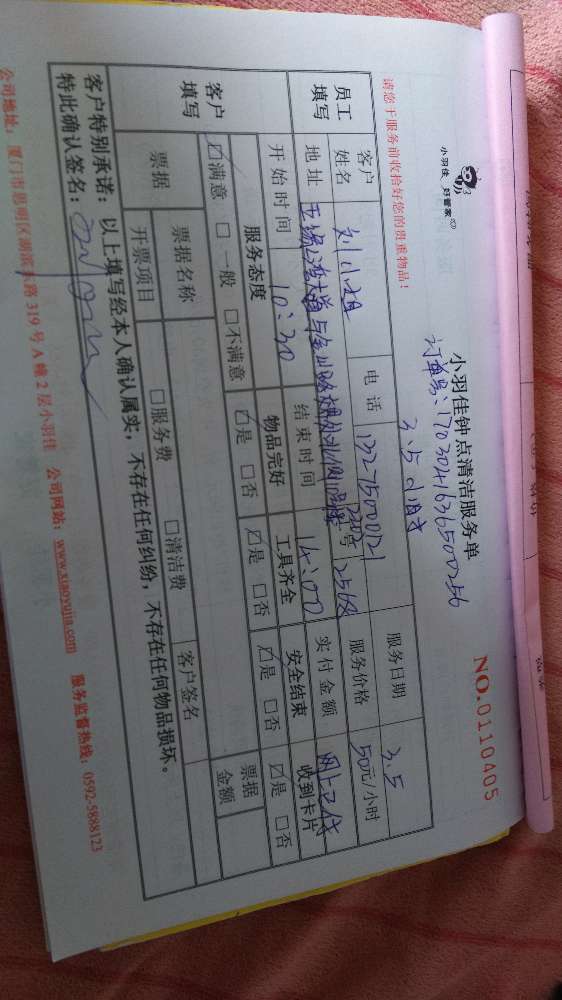 小羽佳 好管家
小羽佳钟点清洁服务单
NO.0110405
订单号:1703041636500256
请您于服务前收拾好您的贵重物品!
3.5小时
员工填写
客户姓名 刘小姐 电话 13275000121 服务日期 3.5
地址 2202 256 服务价格 50元/小时
开始时间 10:30 结束时间 14:00 实付金额 网上已付
客户填写
服务态度 物品完好 工具齐全 安全结束 收到卡片
☑满意 □一般 □不满意 ☑是 □否 ☑是 □否 ☑是 □否 ☑是 □否
票据 票据名称 客户签名 票据金额
开票项目 □服务费 □清洁费
客户特别承诺:以上填写经本人确认属实,不存在任何纠纷,不存在任何物品损坏。
特此确认签名:
公司地址:厦门市思明区湖滨东路319号A幢2层小羽佳 公司网站:www.xiaoyujia.com 服务监督热线:0592-5888123